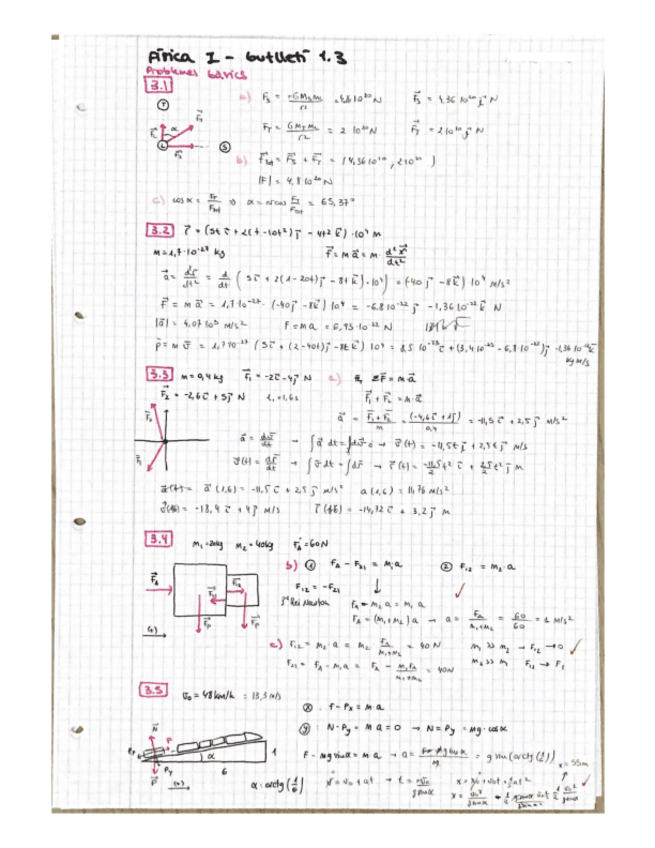 Física I - butlletí 1.3
Problemes bàsics
3.1
a) F_S = G M_S M_L / r² = 4,36 10²⁰ N   F⃗_S = 4,36 10²⁰ i⃗ N
F_T = G M_T M_L / r² = 2 10²⁰ N   F⃗_T = 2 10²⁰ j⃗ N
b) F⃗_tot = F⃗_S + F⃗_T = (4,36 10²⁰, 2 10²⁰)
|F| = 4,8 10²⁰ N
c) cos α = F_T / F_tot ⇒ α = arcos F_T / F_tot = 65,37°
3.2 r⃗ = (5t i⃗ + 2(t - 10t²) j⃗ - 4t² k⃗) · 10⁴ m
m = 1,7 · 10⁻²⁷ kg   F⃗ = m a⃗ = m · d² r⃗ / dt²
a⃗ = d² r⃗ / dt² = d/dt (5 i⃗ + 2(1 - 20t) j⃗ - 8t k⃗) · 10⁴ = (-40 j⃗ - 8 k⃗) 10⁴ m/s²
F⃗ = m a⃗ = 1,7 10⁻²⁷ · (-40 j⃗ - 8 k⃗) 10⁴ = -6,8 10⁻²² j⃗ - 1,36 10⁻²² k⃗ N
|a⃗| = 4,07 10⁵ m/s²   F = m a = 6,93 · 10⁻²² N
p⃗ = m v⃗ = 1,7 10⁻²⁷ (5 i⃗ + (2 - 40t) j⃗ - 8t k⃗) 10⁴ = 8,5 10⁻²³ i⃗ + (3,4 10⁻²³ - 6,8 10⁻²²) j⃗
kg m/s
3.3 m = 0,4 kg   F⃗₁ = -2 i⃗ - 4 j⃗ N   a) Σ F⃗ = m a⃗
F⃗₂ = -2,6 i⃗ + 5 j⃗ N   t = 1,6 s   F⃗₁ + F⃗₂ = m · a⃗
a⃗ = (F⃗₁ + F⃗₂) / m = (-4,6 i⃗ + 1 j⃗) / 0,4 = -11,5 i⃗ + 2,5 j⃗ m/s²
a⃗ = dv⃗ / dt → ∫ a⃗ dt = ∫ dv⃗ → v⃗(t) = -11,5t i⃗ + 2,5t j⃗ m/s
v⃗(t) = dr⃗ / dt → ∫ v⃗ dt = ∫ dr⃗ → r⃗(t) = -11,5/2 t² i⃗ + 2,5/2 t² j⃗ m
a⃗(1,6) = -11,5 i⃗ + 2,5 j⃗ m/s²   a(1,6) = 11,76 m/s²
v⃗(1,6) = -18,4 i⃗ + 4 j⃗ m/s   r⃗(1,6) = -14,72 i⃗ + 3,2 j⃗ m
3.4 m₁ = 20kg   m₂ = 40kg   F_A = 60 N
b) ① F_A - F₂₁ = m₁ a   ② F₁₂ = m₂ · a
F₁₂ = -F₂₁
3ª llei Newton   F_A - m₂ a = m₁ a
F_A = (m₁ + m₂) a → a = F_A / m₁+m₂ = 60 / 60 = 1 m/s²
a) F₁₂ = m₂ a = m₂ F_A / m₁+m₂ = 40 N   m₁ >> m₂ → F₁₂ → 0
F₂₁ = F_A - m₁ a = F_A - m₁ F_A / m₁+m₂ = 40N   m₂ >> m₁
3.5 v₀ = 48 km/h = 13,3 m/s
ⓧ : F - Px = m · a
ⓨ : N - Py = m a = 0 → N = Py = mg · cos α
F - mg sin α = m a → = g sin (arctg (1/6))
α = arctg (1/6)   v = v₀ + at   x = 55m